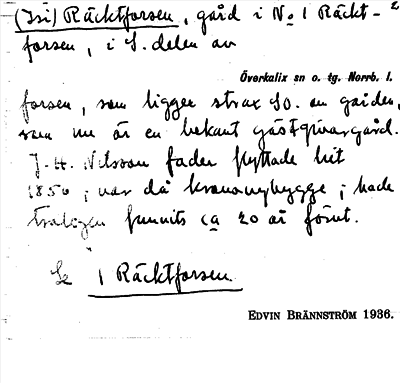 (Isi) Räcktforsen, gård i No 1 Räckt- 2
forsen, i S. delen av
Överkalix sn o. tg. Norrb. l.
forsen, som ligger strax SO. om gården,
som nu är en bekant gästgivargård.
J. H. Nilsson fader flyttade hit
1850; var då krononybygge; hade
troligen funnits ca 20 år förut.
Se 1 Räcktforsen
EDVIN BRÄNNSTRÖM 1936.